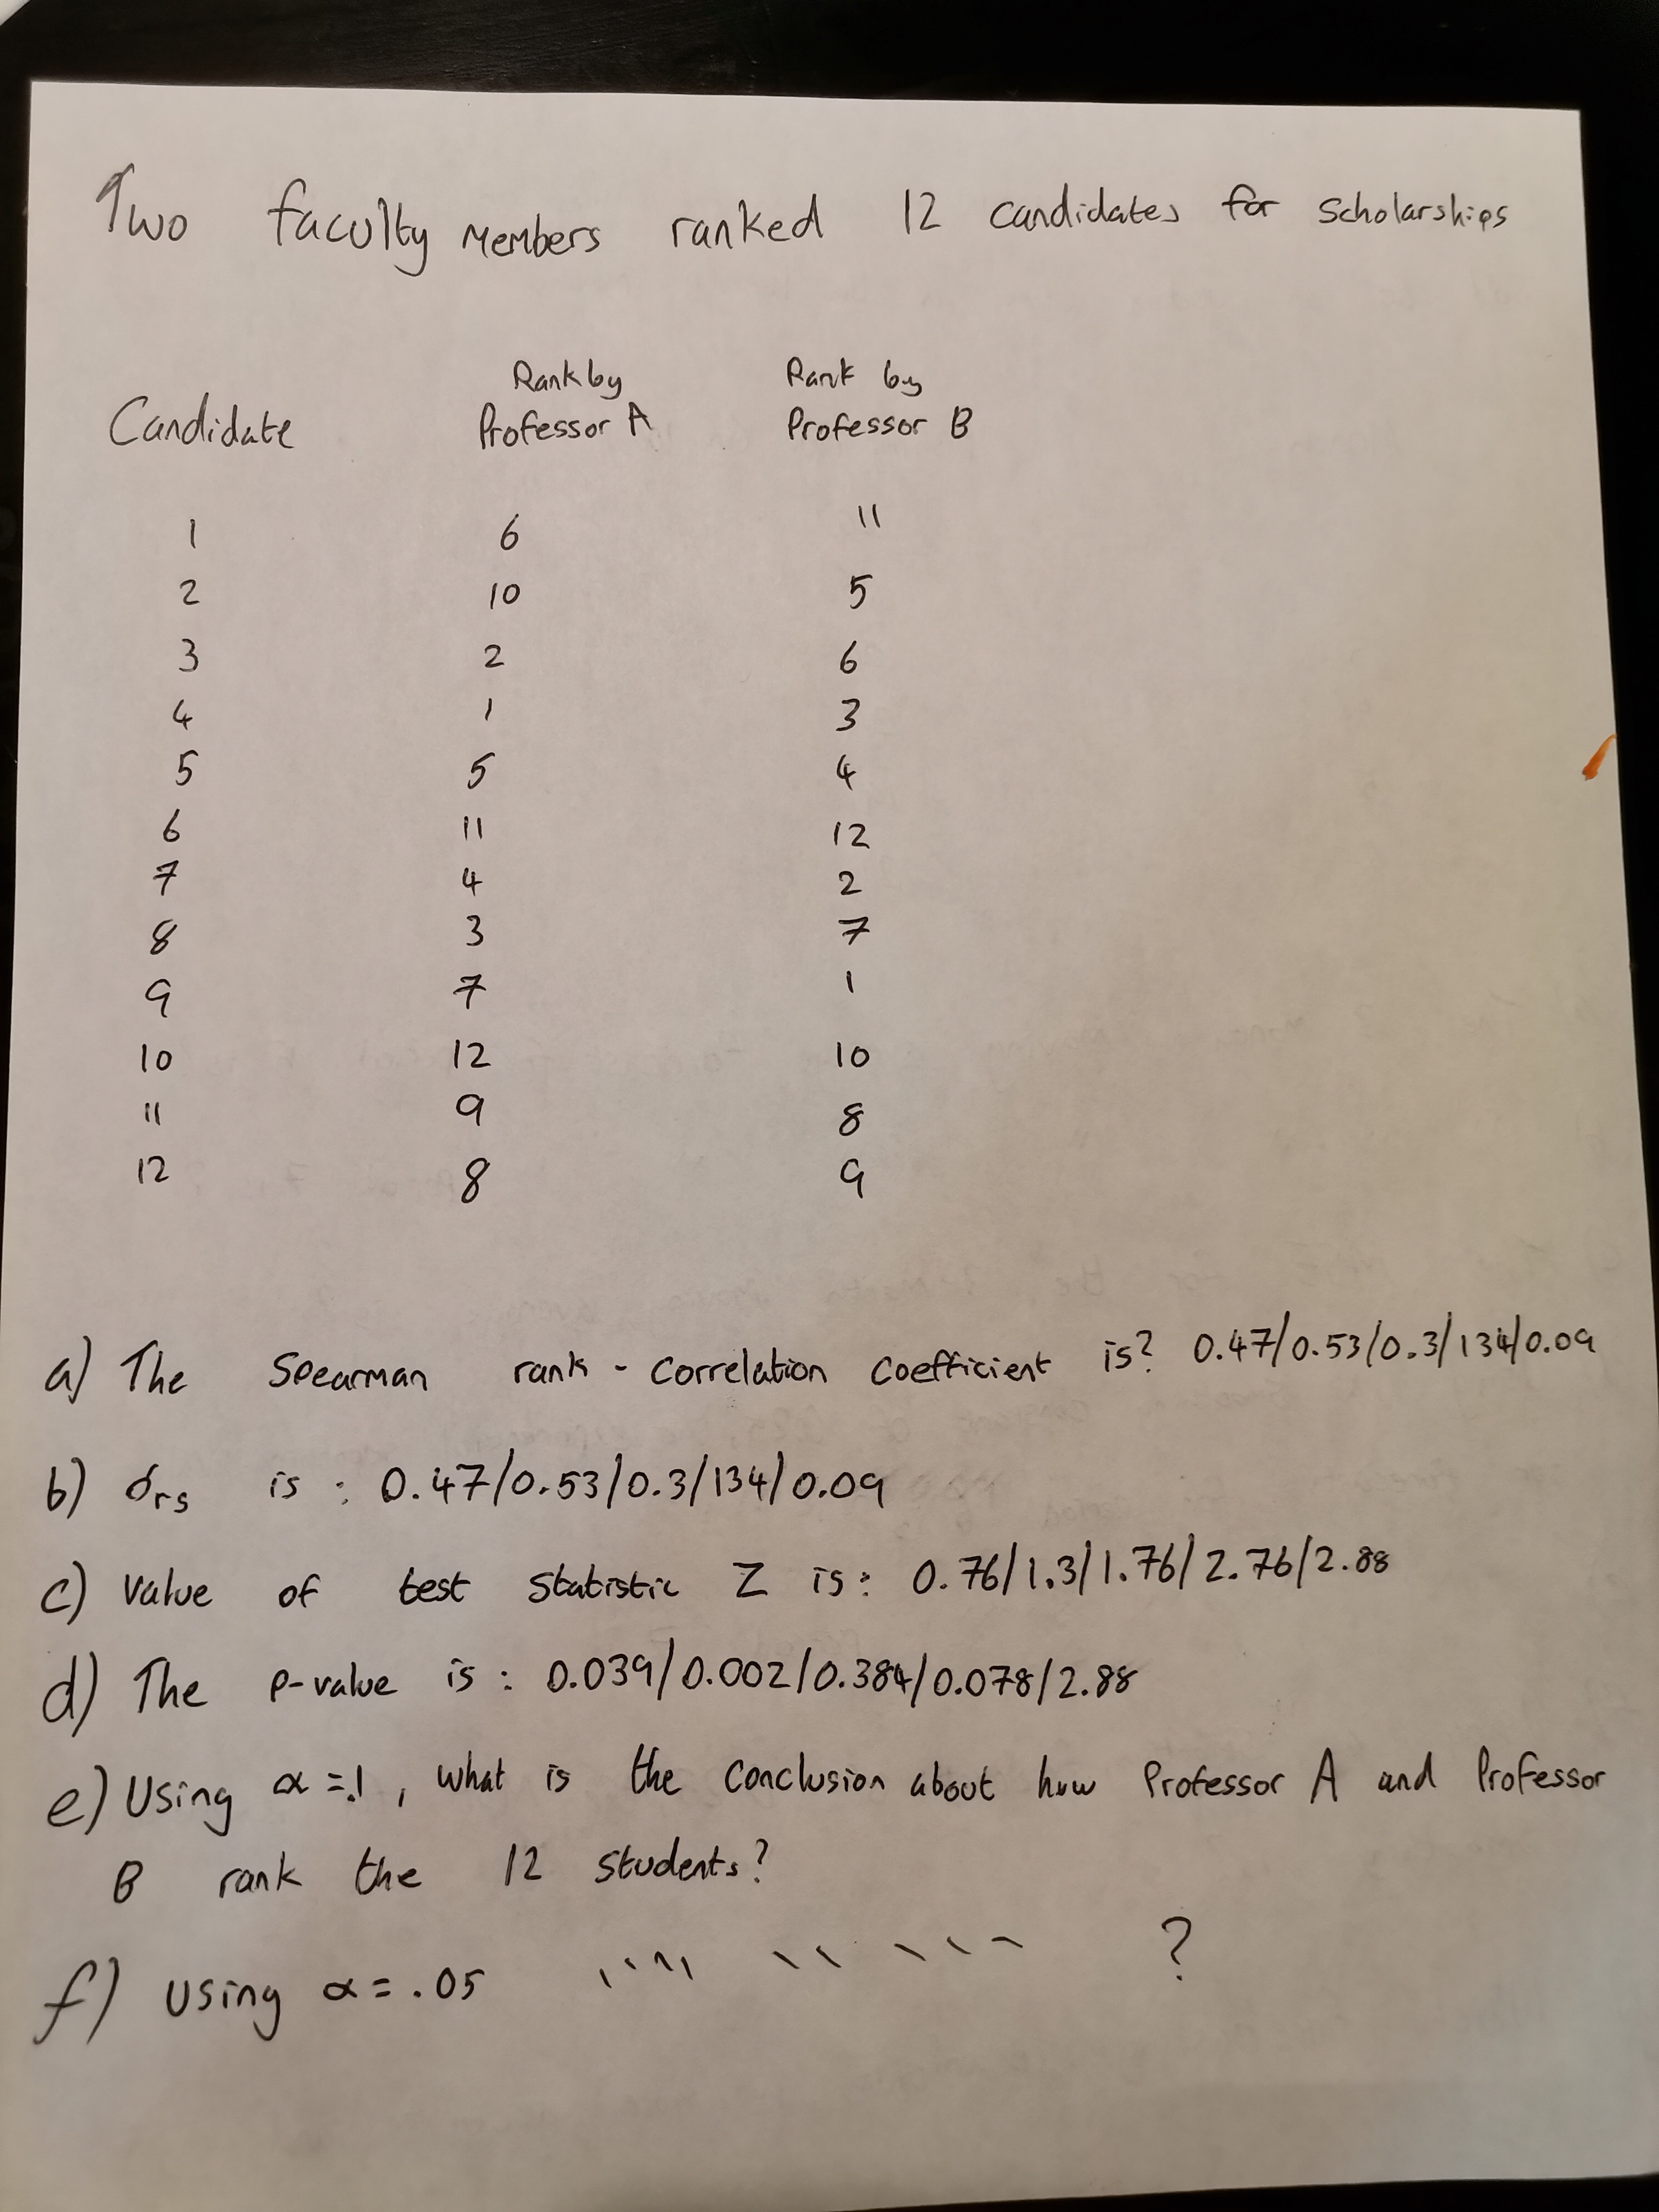 Two faculty members ranked 12 candidates for scholarships
Candidate Rank by Professor A Rank by Professor B
1 6 11
2 10 5
3 2 6
4 1 3
5 5 4
6 11 12
7 4 2
8 3 7
9 7 1
10 12 10
11 9 8
12 8 9
a) The Spearman rank - correlation coefficient is? 0.47/0.53/0.3/134/0.09
b) σrs is : 0.47/0.53/0.3/134/0.09
c) value of test statistic Z is: 0.76/1.3/1.76/2.76/2.88
d) The p-value is : 0.039/0.002/0.384/0.078/2.88
e) Using α =.1, what is the conclusion about how Professor A and Professor
B rank the 12 students?
f) Using α = .05 '''' '' ''' ?